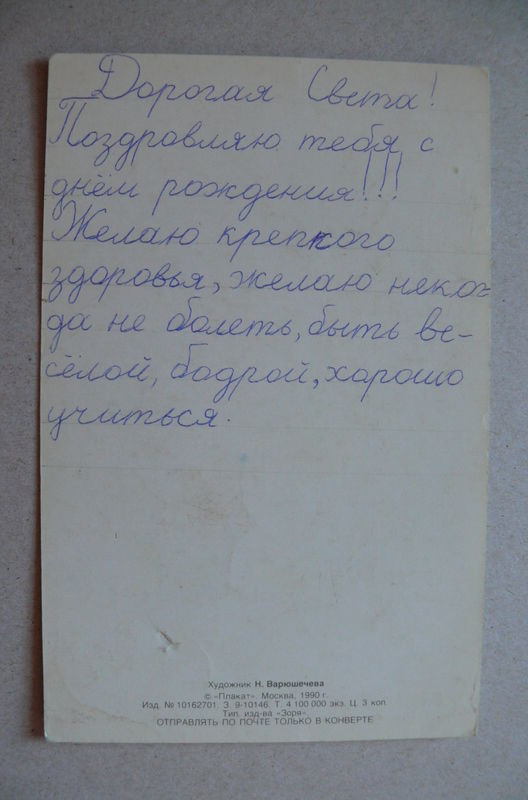 Дорогая Света!
Поздравляю тебя с
днём рождения!!!
Желаю крепкого
здоровья, желаю неког=
да не болеть, быть ве-
сёлой, бодрой, хорошо
учиться.
Художник Н. Варюшечева
© «Плакат». Москва, 1990 г.
Изд. № 10162701. З. 9-10146. Т. 4 100 000 экз. Ц. 3 коп.
Тип. изд-ва «Зоря».
ОТПРАВЛЯТЬ ПО ПОЧТЕ ТОЛЬКО В КОНВЕРТЕ